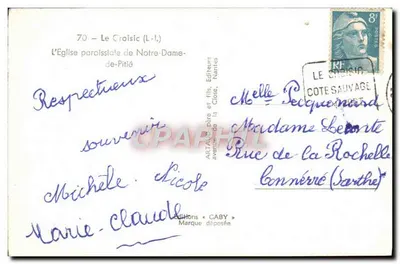 70 - Le Croisic (L.-I.)
L'Eglise paroissiale de Notre-Dame-
de-Pitié
Respectueux
souvenir
Michèle. Nicole
Marie-Claude
Editions "GABY"
Marque déposée
ARTAUD père et fils, Editeurs
avenue de la Close, Nantes
8f
RF
LE CROISIC
COTE SAUVAGE
Melle Pecquenard
Madame Leconte
Rue de la Rochelle
Connérré (Sarthe)
CPAPHIL